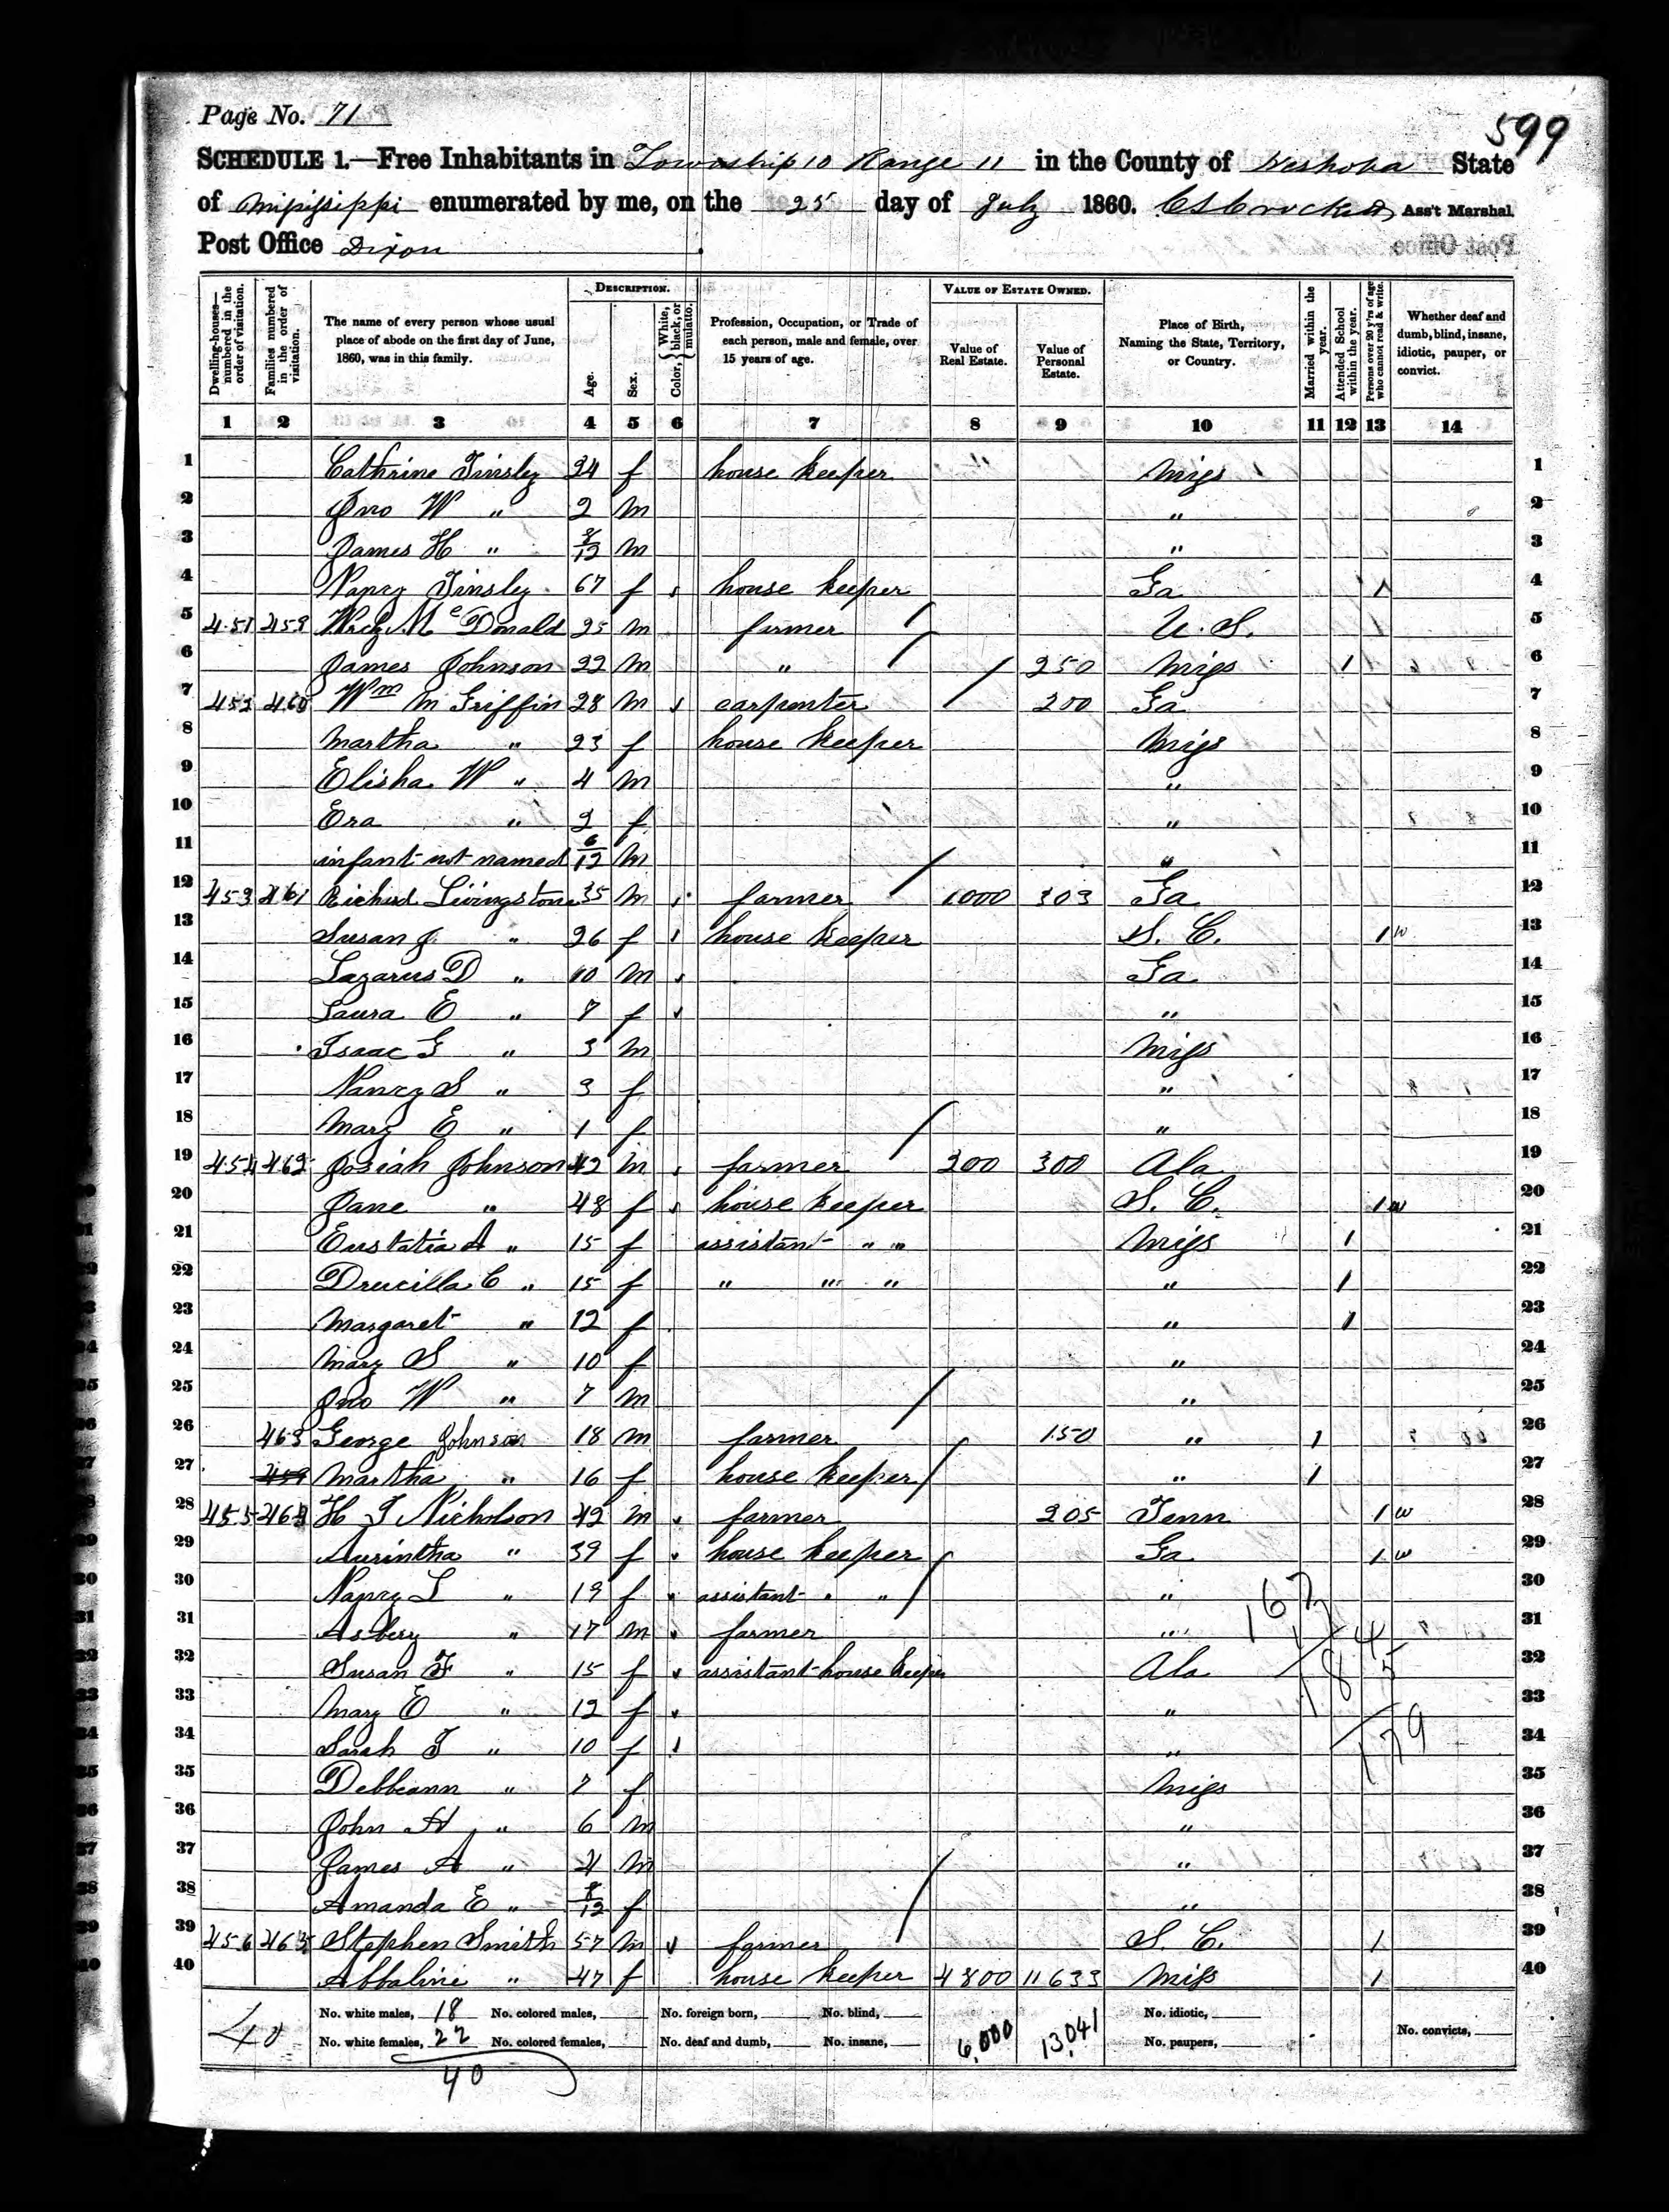 Page No. 71
599
SCHEDULE 1.—Free Inhabitants in Township 10 Range 11 in the County of Neshoba State
of Mississippi enumerated by me, on the 25 day of July 1860. C S Crockett Ass't Marshal.
Post Office Dixon
Dwelling-houses—numbered in the order of visitation. Families numbered in the order of visitation. The name of every person whose usual place of abode on the first day of June, 1860, was in this family. DESCRIPTION. Age. Sex. Color, {White, black, or mulatto. Profession, Occupation, or Trade of each person, male and female, over 15 years of age. VALUE OF ESTATE OWNED. Value of Real Estate. Value of Personal Estate. Place of Birth, Naming the State, Territory, or Country. Married within the year. Attended School within the year. Persons over 20 y'rs of age who cannot read & write. Whether deaf and dumb, blind, insane, idiotic, pauper, or convict.
1 2 3 4 5 6 7 8 9 10 11 12 13 14
1 Cathrine Tinsley 24 f house keeper Miss 1
2 Jno W " 2 m " 2
3 James H " 8/12 m " 3
4 Nancy Tinsley 67 f house keeper Ga 1 4
5 451 459 McDonald 25 m farmer U.S. 5
6 James Johnson 22 m " 250 Miss 1 6
7 452 460 Wm M Griffin 28 m carpenter 200 Ga 7
8 Martha " 23 f house keeper Miss 8
9 Elisha W " 4 m " 9
10 Ora " 2 f " 10
11 infant not named 6/12 m " 11
12 453 461 Richard Livingstone 35 m farmer 1000 303 Ga 12
13 Susan J " 26 f house keeper S. C. 1 w 13
14 Lazarus D " 10 m Ga 14
15 Laura E " 7 f " 15
16 Isaac G " 5 m Miss 16
17 Nancy S " 3 f " 17
18 Mary E " 1 f " 18
19 454 462 Josiah Johnson 42 m farmer 200 300 Ala 19
20 Jane " 48 f house keeper S. C. 1 w 20
21 Eustatia A " 15 f assistant " " Miss 1 21
22 Drucilla C " 15 f " " " " 1 22
23 Margaret " 12 f " 1 23
24 Mary S " 10 f " 24
25 Jno W " 7 m " 25
26 463 George Johnson 18 m farmer 150 " 1 26
27 459 Martha " 16 f house keeper " 1 27
28 455 464 H T Nicholson 42 m farmer 205 Tenn 1 w 28
29 Aurintha " 39 f house keeper Ga 1 w 29
30 Nancy L " 19 f assistant " " " 30
31 Asbery " 17 m farmer " 31
32 Susan F " 15 f assistant house keeper Ala 32
33 Mary E " 12 f " 33
34 Sarah T " 10 f " 34
35 Debbeann " 7 f Miss 35
36 John H " 6 m " 36
37 James A " 4 m " 37
38 Amanda E " 8/12 f " 38
39 456 465 Stephen Smith 57 m farmer S. C. 1 39
40 Abbaline " 47 f house keeper 4800 11633 Miss 1 40
40 No. white males, 18 No. colored males, No. foreign born, No. blind, 6,000 13,041 No. idiotic,
No. white females, 22 No. colored females, No. deaf and dumb, No. insane, No. paupers, No. convicts,
40